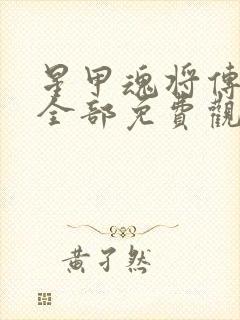 星甲魂將傳
全部免費觀
黃子然